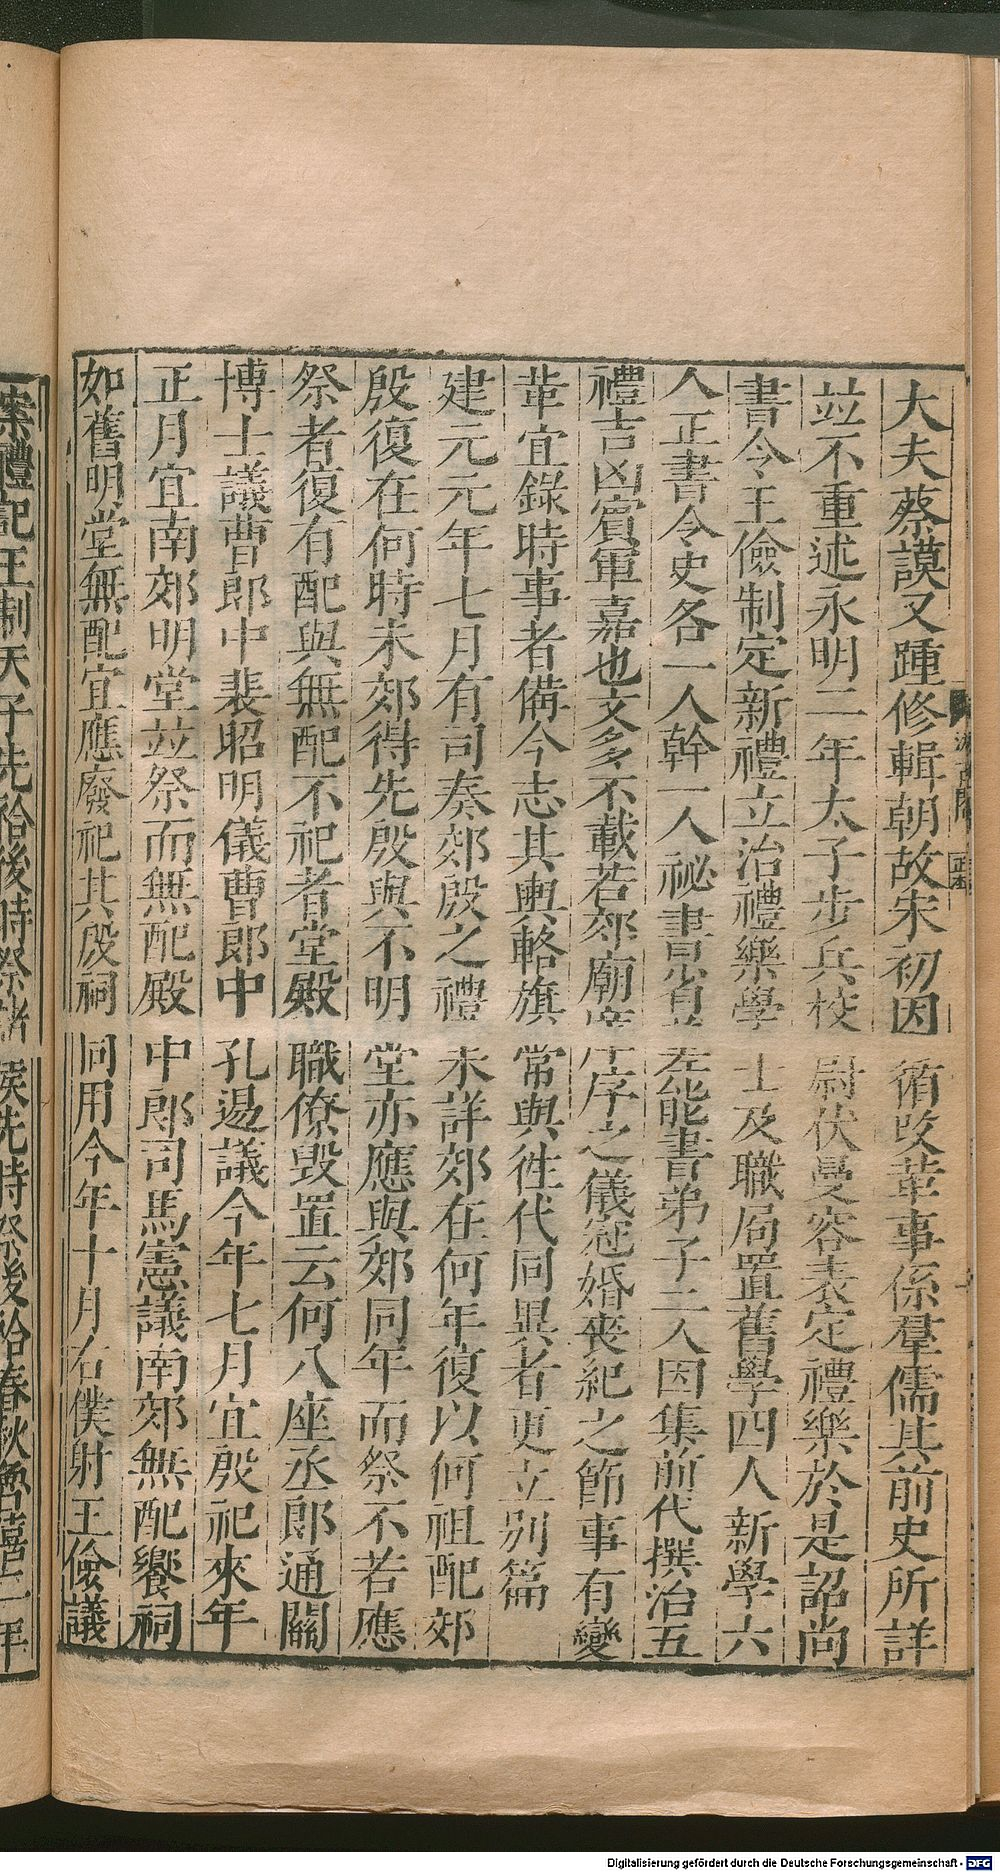 大夫蔡謨又踵修輯朝故宋初因循改革事係羣儒其前史所詳
並不重述永明二年太子步兵校尉伏曼容表定禮樂於是詔尚
書令王儉制定新禮立治禮樂學士及職局置舊學四人新學六
人正書令史各一人幹一人祕書省差能書弟子二人因集前代撰治五
禮吉凶賓軍嘉也文多不載若郊廟庠序之儀冠婚喪紀之節事有變
革宜錄時事者備今志其輿輅旗常與徃代同異者更立別篇
建元元年七月有司奏郊殷之禮未詳郊在何年復以何祖配郊
殷復在何時未郊得先殷與不明堂亦應與郊同年而祭不若應
祭者復有配與無配不祀者堂殿職僚毀置云何八座丞郎通關
博士議曹郎中裴昭明儀曹郎中孔逷議今年七月宜殷祀來年
正月宜南郊明堂並祭而無配殿中郎司馬憲議南郊無配饗祠
如舊明堂無配宜應廢祀其殷祠同用今年十月右僕射王儉議
案禮記王制天子先祫後時祭諸侯先時祭後祫春秋魯僖二年
Digitalisierung gefördert durch die Deutsche Forschungsgemeinschaft - DFG